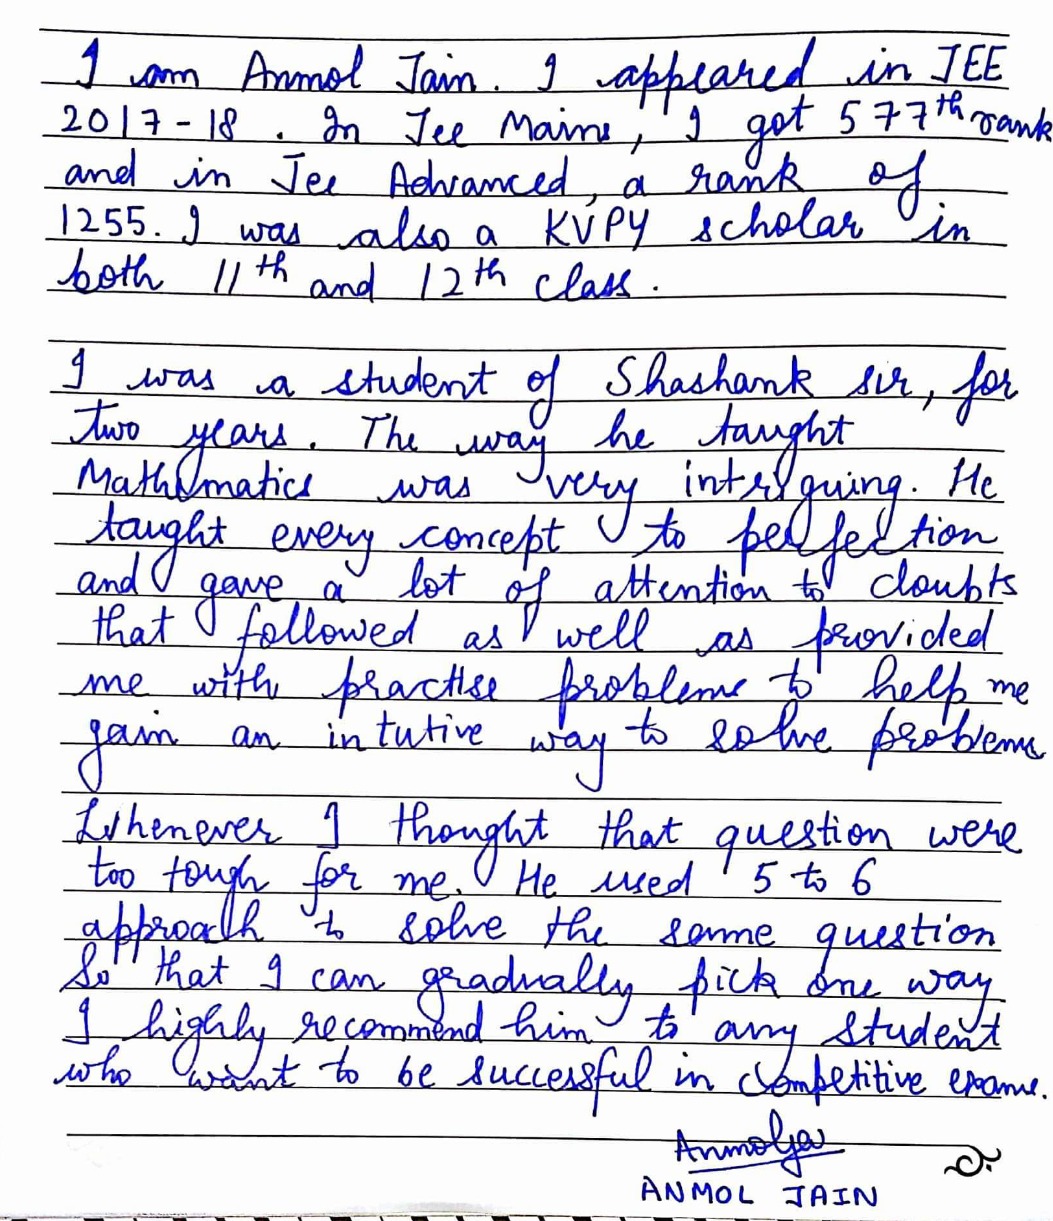 I am Anmol Jain. I appeared in JEE
2017-18. In Jee Mains, I got 577th rank
and in Jee Advanced, a rank of
1255. I was also a KVPY scholar in
both 11th and 12th class.
I was a student of Shashank sir, for
two years. The way he taught
Mathematics was very intriguing. He
taught every concept to perfection
and gave a lot of attention to doubts
that followed as well as provided
me with practise problems to help me
gain an intutive way to solve problems
Whenever I thought that question were
too tough for me. He used 5 to 6
approach to solve the same question
So that I can gradually pick one way
I highly recommend him to any student
who want to be successful in competitive exams.
ANMOL JAIN